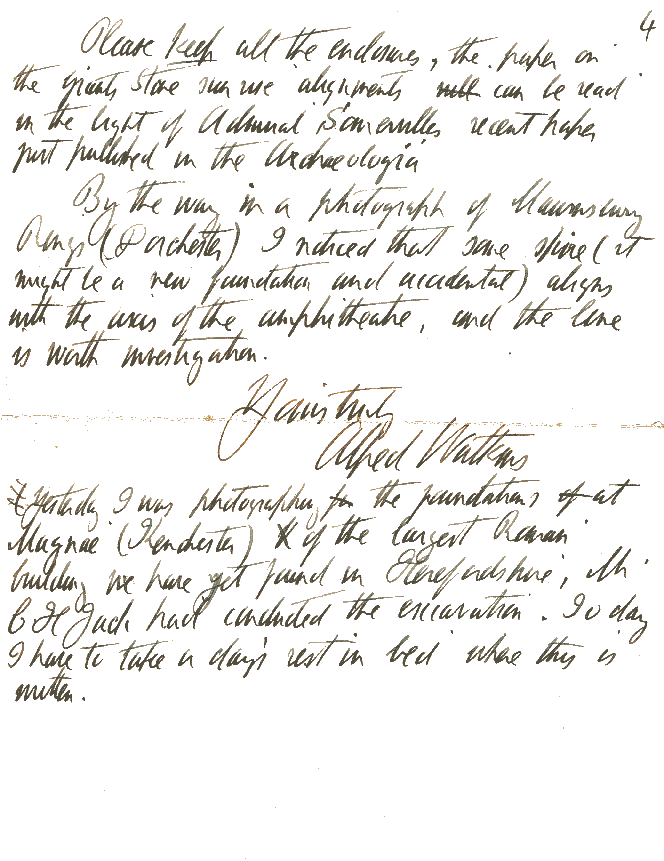 4
Please keep all the enclosures, the paper on
the giants stone sun rise alignments can be read
in the light of Admiral Somervilles recent paper
just published in the Archaeologia
By the way in a photograph of Maumsbury
Rings (Dorchester) I noticed that some spire (it
might be a new foundation and accidental) aligns
with the axis of the amphitheatre, and the line
is worth investigation.
Yours truly
Alfred Watkins
Yesterday I was photographing the foundations at
Magnae (Kenchester) of the largest Roman
building we have yet found in Herefordshire, Mr
G H Jack had conducted the excavation. To day
I have to take a day's rest in bed where this is
written.